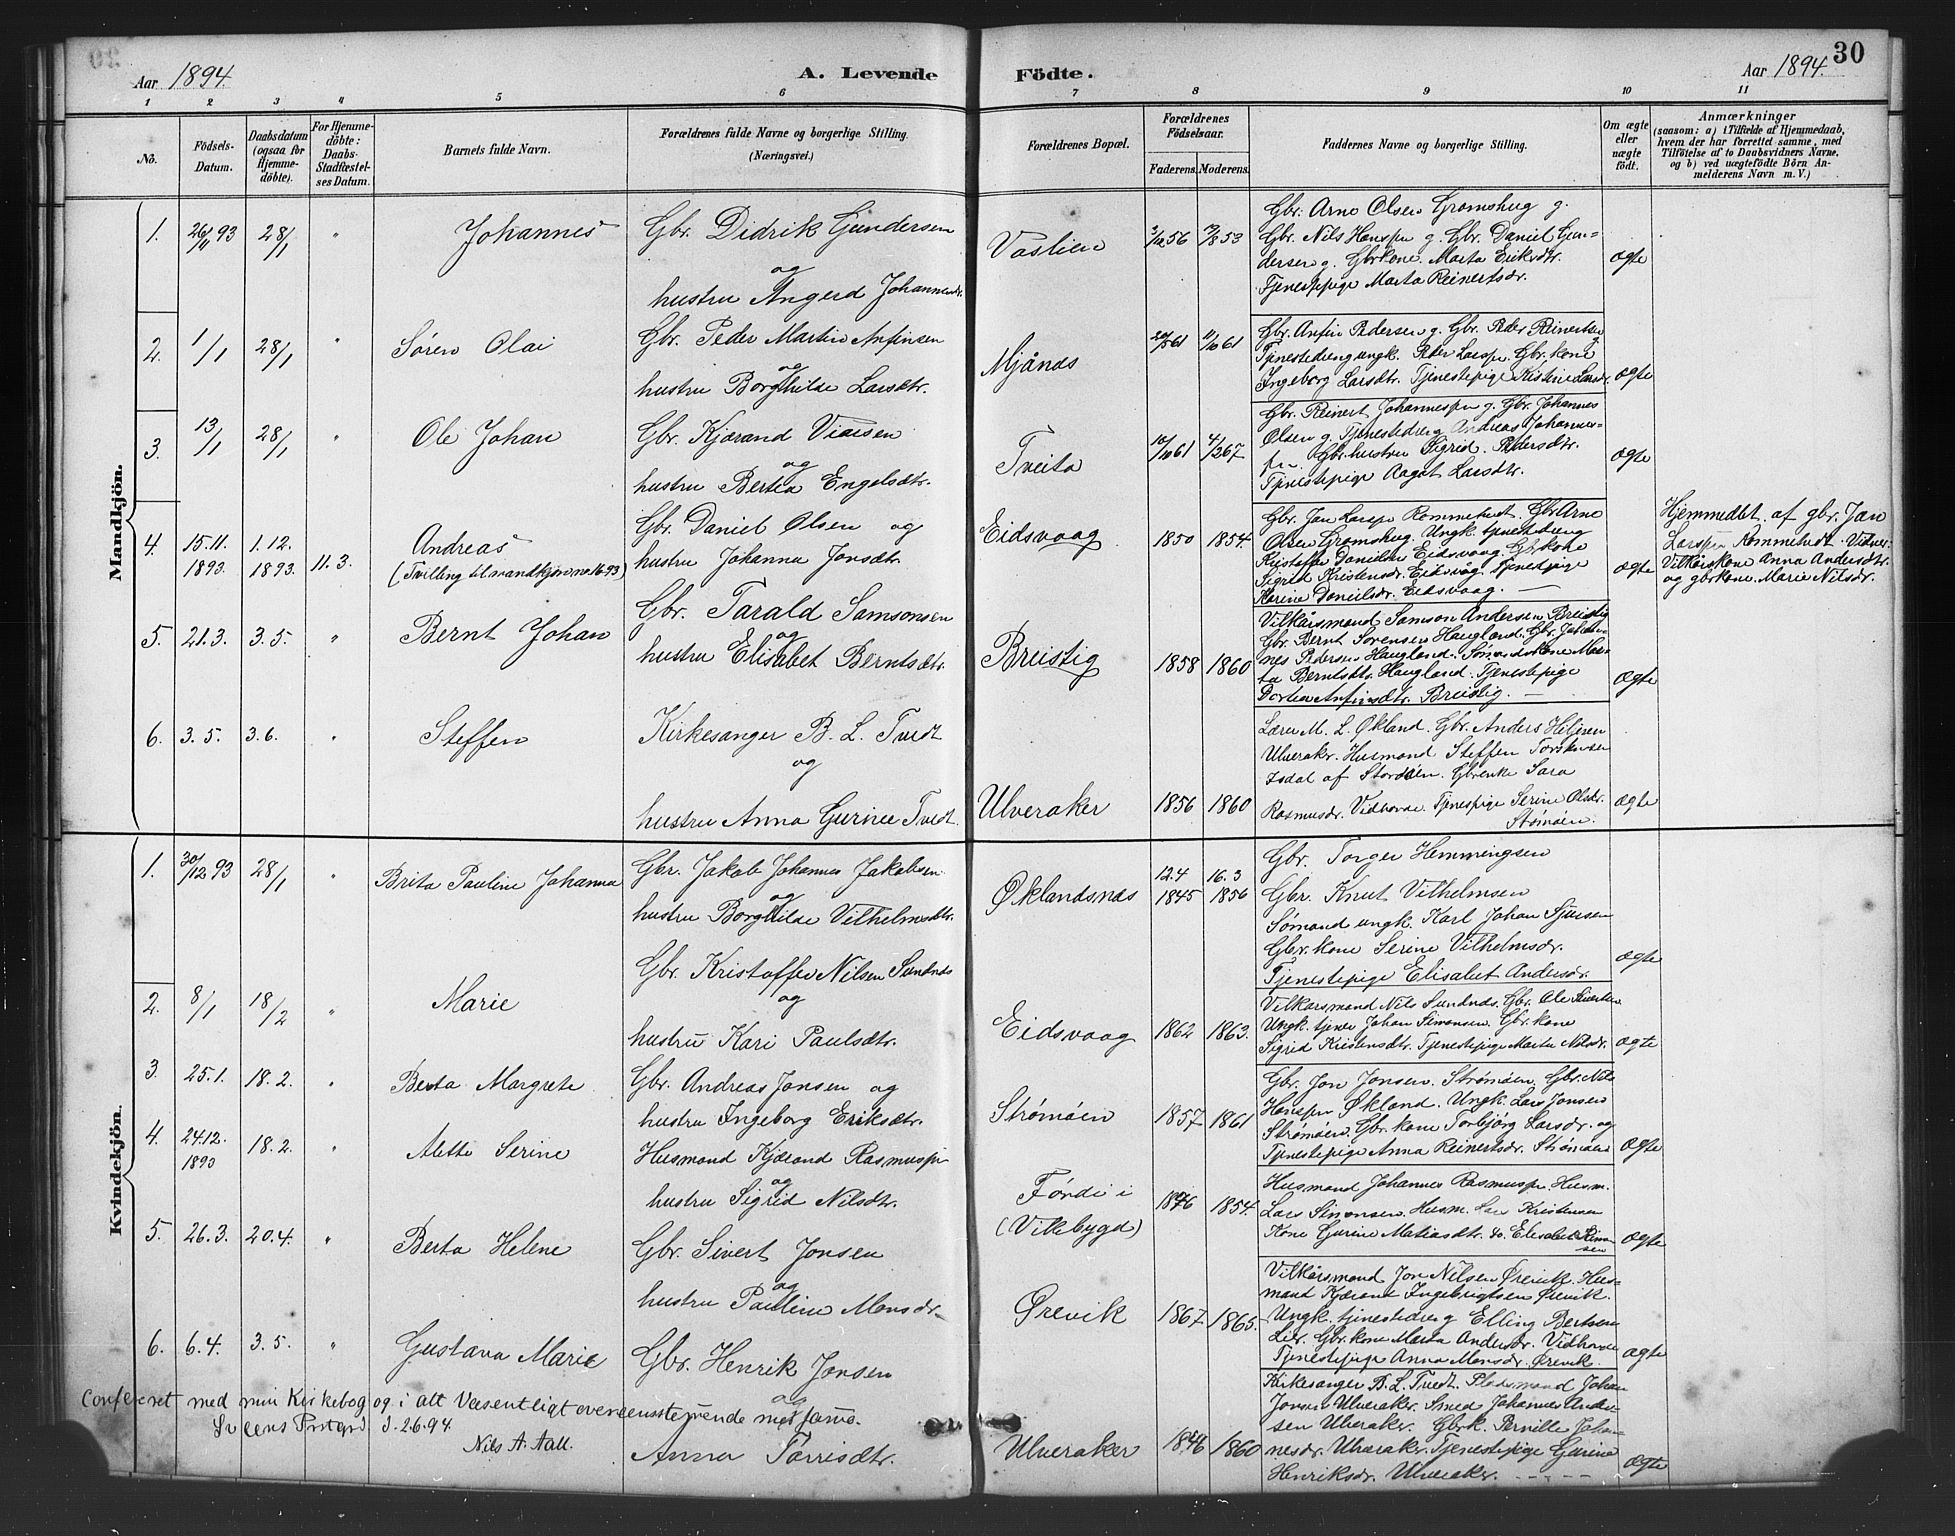 Aar 1894.
A. Levende
Födte.
Aar 1894.
30
1 2 3 4 5 6 7 8 9 10 11
No.
Födsels-
Datum.
Daabsdatum
(ogsaa for
Hjemme-
döbte).
For Hjemme-
döbte:
Daabs-
Stadfæstel-
ses Datum.
Barnets fulde Navn.
Forældrenes fulde Navne og borgerlige Stilling.
(Næringsvei.)
Forældrenes Bopæl.
Forældrenes
Födselsaar.
Faderens. Moderens.
Faddernes Navne og borgerlige Stilling.
Om ægte
eller
uægte
födt.
Anmærkninger
(saasom: a) i Tilfælde af Hjemmedaab,
hvem der har forrettet samme, med
Tilföielse af to Daabsvidners Navne,
og b) ved uægtefödte Börn An-
melderens Navn m. V.)
Mandkjön.
1. 26/11 93 28/1 " Johannes
Gbr. Didrik Gundersen
og
hustru Angerd Johannesdr.
Vaslien
56 53
Gbr. Arne Olsen Gromshug g.
Gbr. Nils Hanssen g. Gbr. Daniel Gun-
dersen g. Gbrkone Marta Eriksdtr.
Tjenestepige Marta Reinertsdr.
ægte
2. 1/1 28/1 " Søren Olai
Gbr. Peder Martin Anfinsen
og
hustru Borghilde Larsdtr.
Mjånæs
61 61
Gbr. Anfin Pedersen g. Gbr. Peder Reinertsen g.
Tjenestedreng ungk. Peder Larssen. Gbr.kone
Ingeborg Larsdtr. Tjenestepige Kristine Larsdr.
ægte
3. 13/1 28/1 " Ole Johan
Gbr. Kjærand
og
hustru Bertha Engelsdtr.
Tveita
10/10 61 4/12 67
Gbr. Reinert Johannessen g. Gbr. Johannes
Olsen g. Tjenestedreng Andreas Johannes-
sen Gbr. hustru Sigrid Pedersdtr.
Tjenestepige Aagot Larsdtr.
ægte
4. 15.11. 1893. 1.12. 1893. 11.3. Andreas
(Tvilling til mandkjøn no. 16-93)
Gbr. Daniel Olsen og
hustru Johanna Jonsdtr.
Eidsvaag
1850 1854.
Gbr. Jan Larssen Rommetvedt. Gbr Arne
Olsen Gromshug. Ungk. tjenestdreng
Kristoffer Danielsen Eidsvaag. Gbrkone
Sigrid Kristensdr. Eidsvåg. Tjenestpige
Karine Danielsdr. Eidsvaag.
ægte
Hjemmedøbt af gbr. Jan
Larssen Rommetvedt. Vidner:
Vilkårskone Anna Andersdtr.
og gbrkone Marie Nilsdr.
5. 21.3. 3.5. " Bernt Johan
Gbr. Tarald Samsonsen
og
hustru Elisabet Berntsdtr.
Breistig
1858 1860
Vilkårsmand Samson Andersen Breistig
Gbr. Bernt Sørensen Haugland. Gbr. Johan-
nes Pedersen Haugland. Sømandskone Mar-
ta Berntsdtr. Haugland. Tjenestepige
Dortea Anfinsdtr. Breistig.
ægte
6. 3.5. 3.6. " Steffen
Kirkesanger B. L. Tvedt
og
hustru Anna Gurine Tvedt.
Ulveraker
1856 1860
Lærer M. L. Økland. Gbr. Anders Heljesen
Ulveraker. Husmand Steffen
af Stordøen. Gbrenke Sara
Rasmusdr. Vidhovde. Tjenestpige Serine Olsdr.
Strømøen.
ægte
Kvindekjön.
1. 30/12 93 28/1 " Brita Pauline Johanna
Gbr. Jakob Johannes Jakobsen
og
hustru Borghilde Vilhelmsdtr.
Øklandsnæs
12.4 1845 16.3 1856
Gbr. Torger Hemmingsen
Gbr. Knut Vilhelmsen
Sømand ungk. Karl Johan Sjursen
Gbr.kone Serine Vilhelmsdr.
Tjenestepige Elisabet Andersdr.
ægte
2. 8/1 18/2 " Marie
Gbr. Kristoffer Nilsen Sundnæs
og
hustru Kari Paulsdtr.
Eidsvaag
1862 1863.
Vilkårsmand Nils Sundnæs. Gbr. Ole Sivertsen
Ungk. tjener Johan Simonsen. Gbr.kone
Sigrid Kristensdtr. Tjenestepige Marta Nilsdr.
ægte
3. 25.1. 18.2. " Berta Margrete
Gbr. Andreas Jonsen og
hustru Ingeborg Eriksdtr.
Strømøen
1857 1861
Gbr. Jon Jonsen. Strømøen. Gbr. Nils
Hanssen Økland. Ungk. Lars Jonsen
Strømøen. Gbr.kone Torbjørg Larsdr. og
Tjenestepige Anna Reinertsdr. Strømøen
ægte
4. 24.12. 1893 18.2. " Alette Serine
Husmand Kjærand Rasmussen
og
hustru Sigrid Nilsdtr.
Førde i
(Vikebygd)
1846 1854.
Husmand Johannes Rasmussen. Husm.
Lars Simonsen. Husm. Lars Kristensen
Kone Gurine Matiasdtr. do. Elisabet Simon-
sen
ægte
5. 26.3. 20.4. " Berta Helene
Gbr. Sivert Jonsen
og
hustru Pauline Monsdr.
Ørevik
1867 1865.
Vilkårsmand Jon Nilsen Ørevik. Hus-
mand Kjærand Ingebrigtsen Ørevik.
Ungk. tjenestedreng Elling Bertsen
Lier. Gbr.kone Marta Andersdr. Vidhovde
Tjenestepige Anna Monsdr. Ørevik.
ægte
6. 6.4. 3.5. " Gustava Marie
Gbr. Henrik Jonsen
og
Anna Torrisdtr.
Ulveraker
1846 1860
Kirkesanger B. L. Tvedt. Pladsmand Johan
Jonsen Ulveraker. Smed Johannes Ander-
sen Ulveraker. Gbrk. Pernille Johan-
nesdr. Ulveraker. Tjenestepige Gurine
Henriksdr. Ulveraker.
ægte
Confereret med min Kirkebog og i alt Væsentligt overensstemmende med samme.
Sveens Prstgrd 2.6.94.
Nils A. Aall.